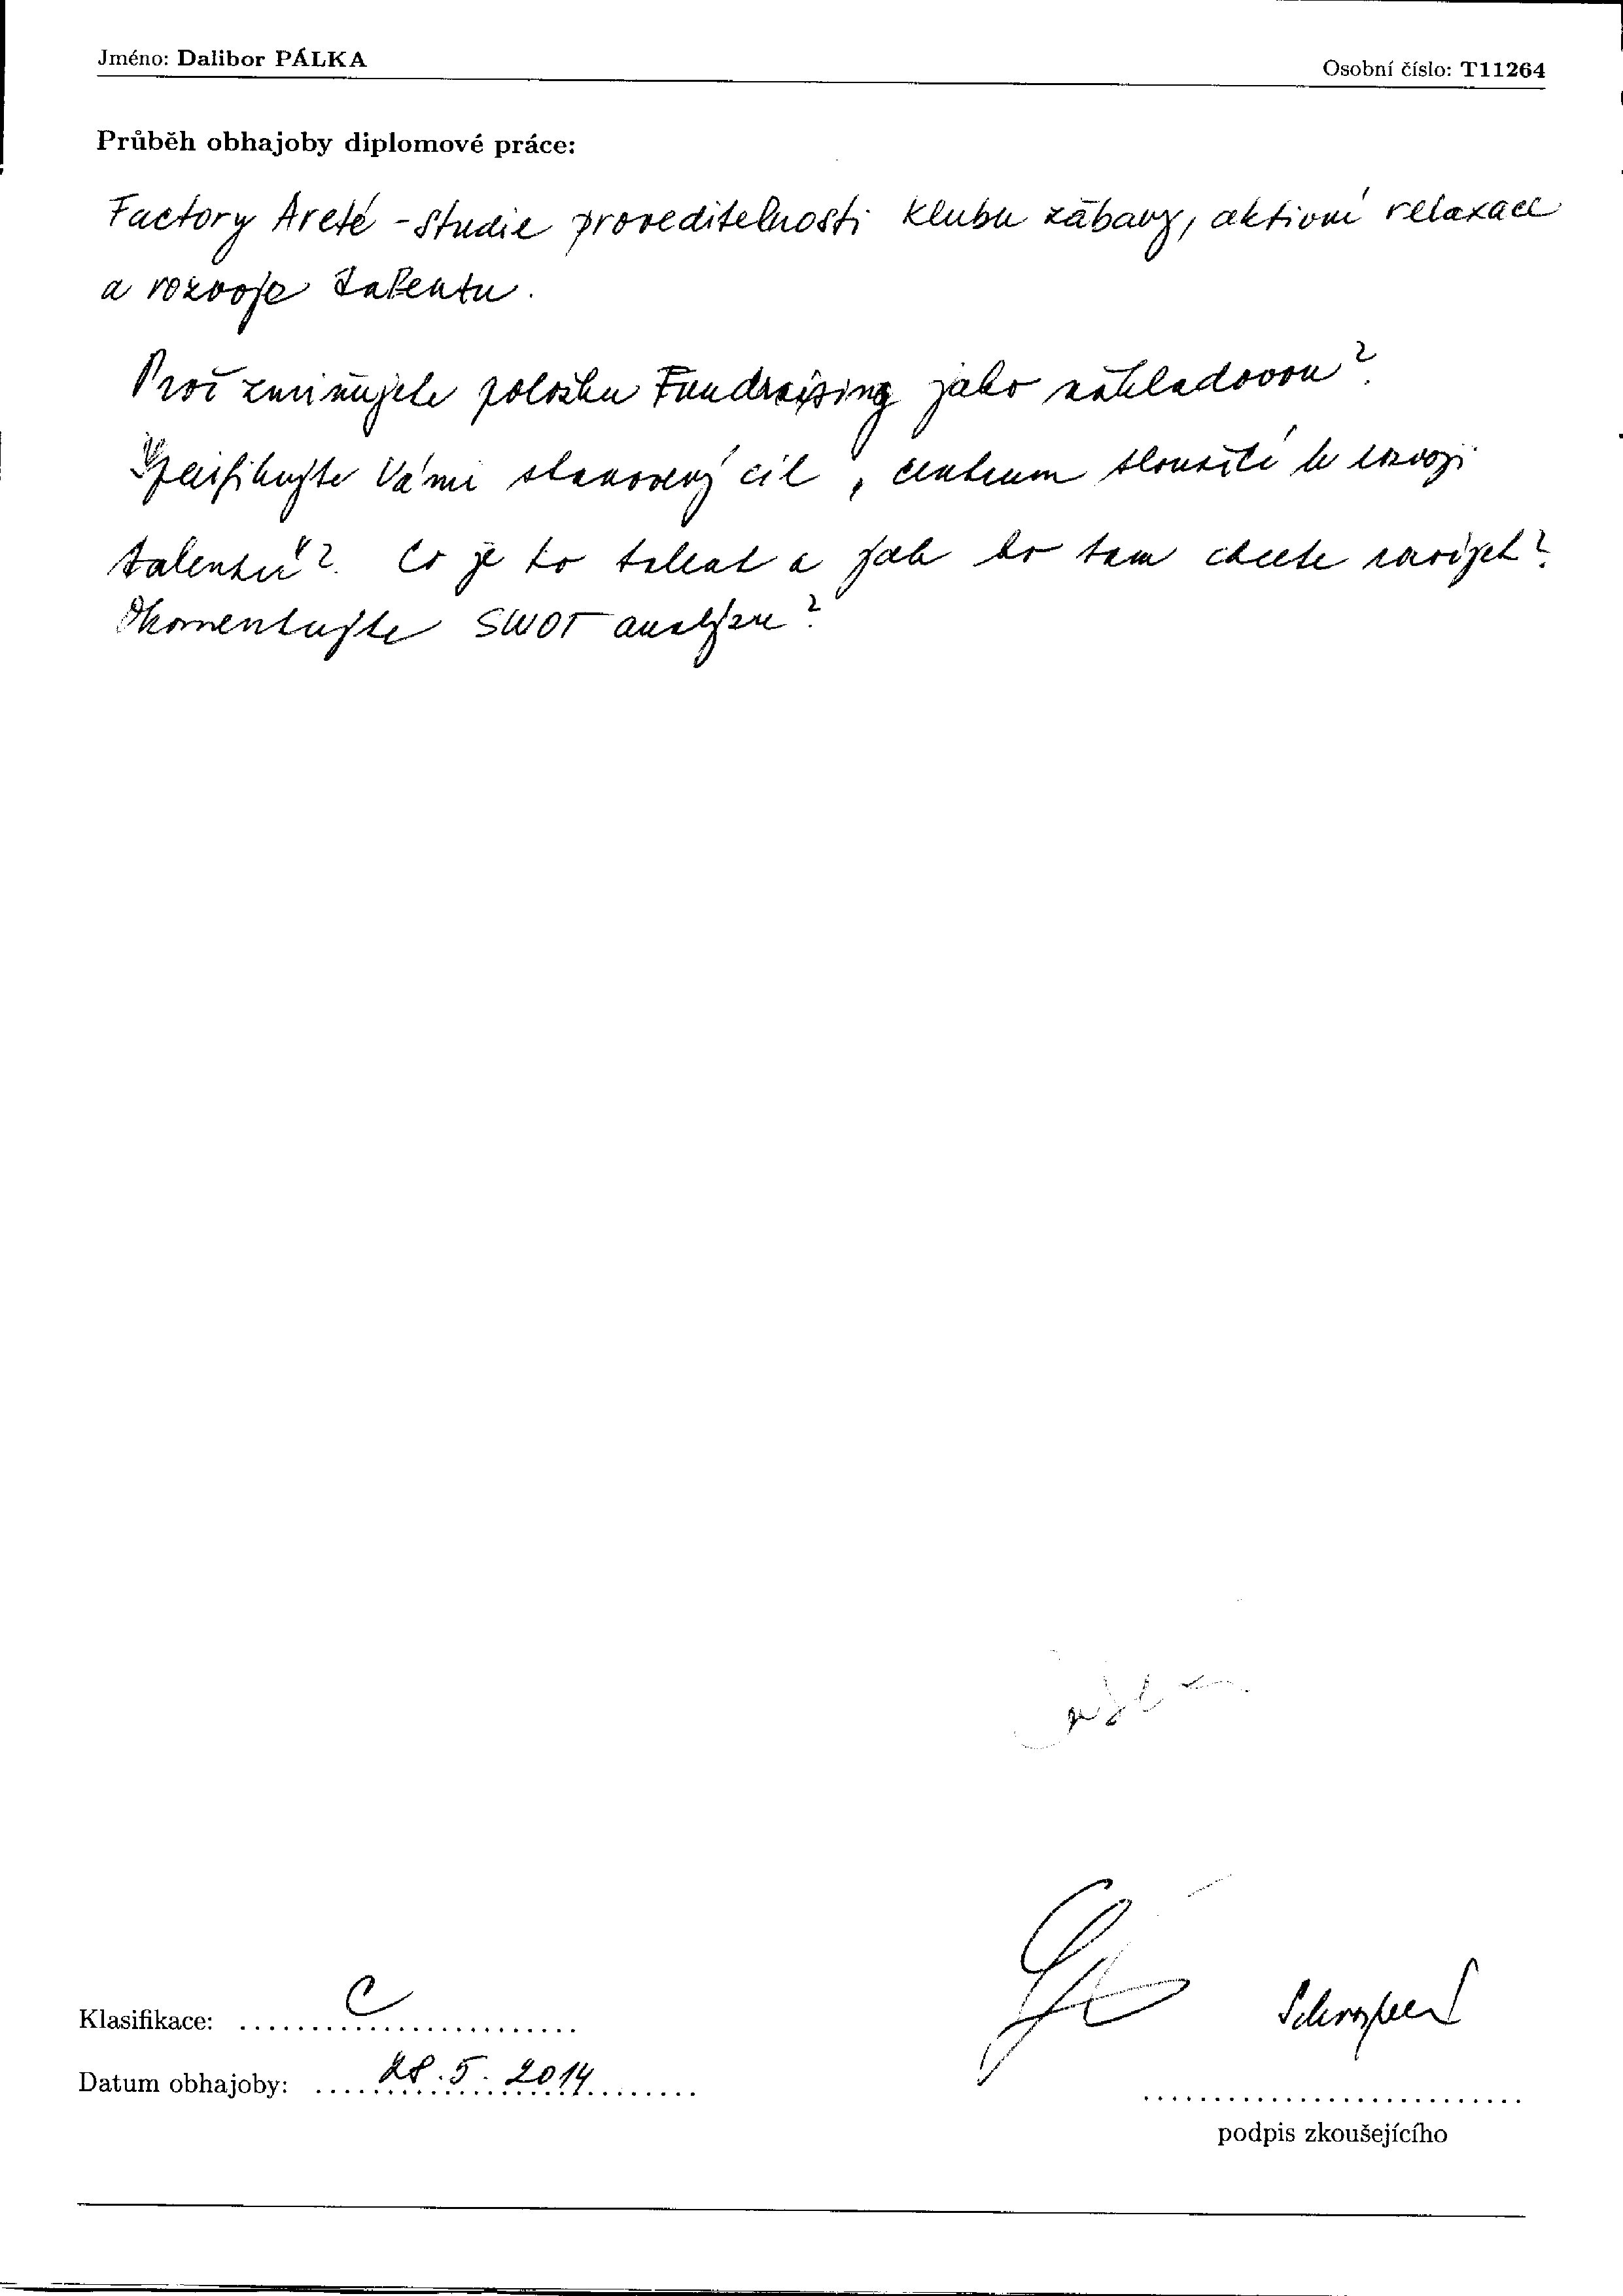 Jméno: Dalibor PÁLKA
Osobní číslo: T11264
Průběh obhajoby diplomové práce:
Factory Areté - studie proveditelnosti klubu zábavy, aktivní relaxace
a rozvoje talentu.
Proč zmiňujete položku Fundraising jako nákladovou?
Specifikujte Vámi stanovený cíl „centrum sloužící k rozvoji
talentu“? Co je to talent a jak ho tam chcete rozvíjet?
Okomentujte SWOT analýzu?
Klasifikace: C
Datum obhajoby: 28.5.2014
podpis zkoušejícího